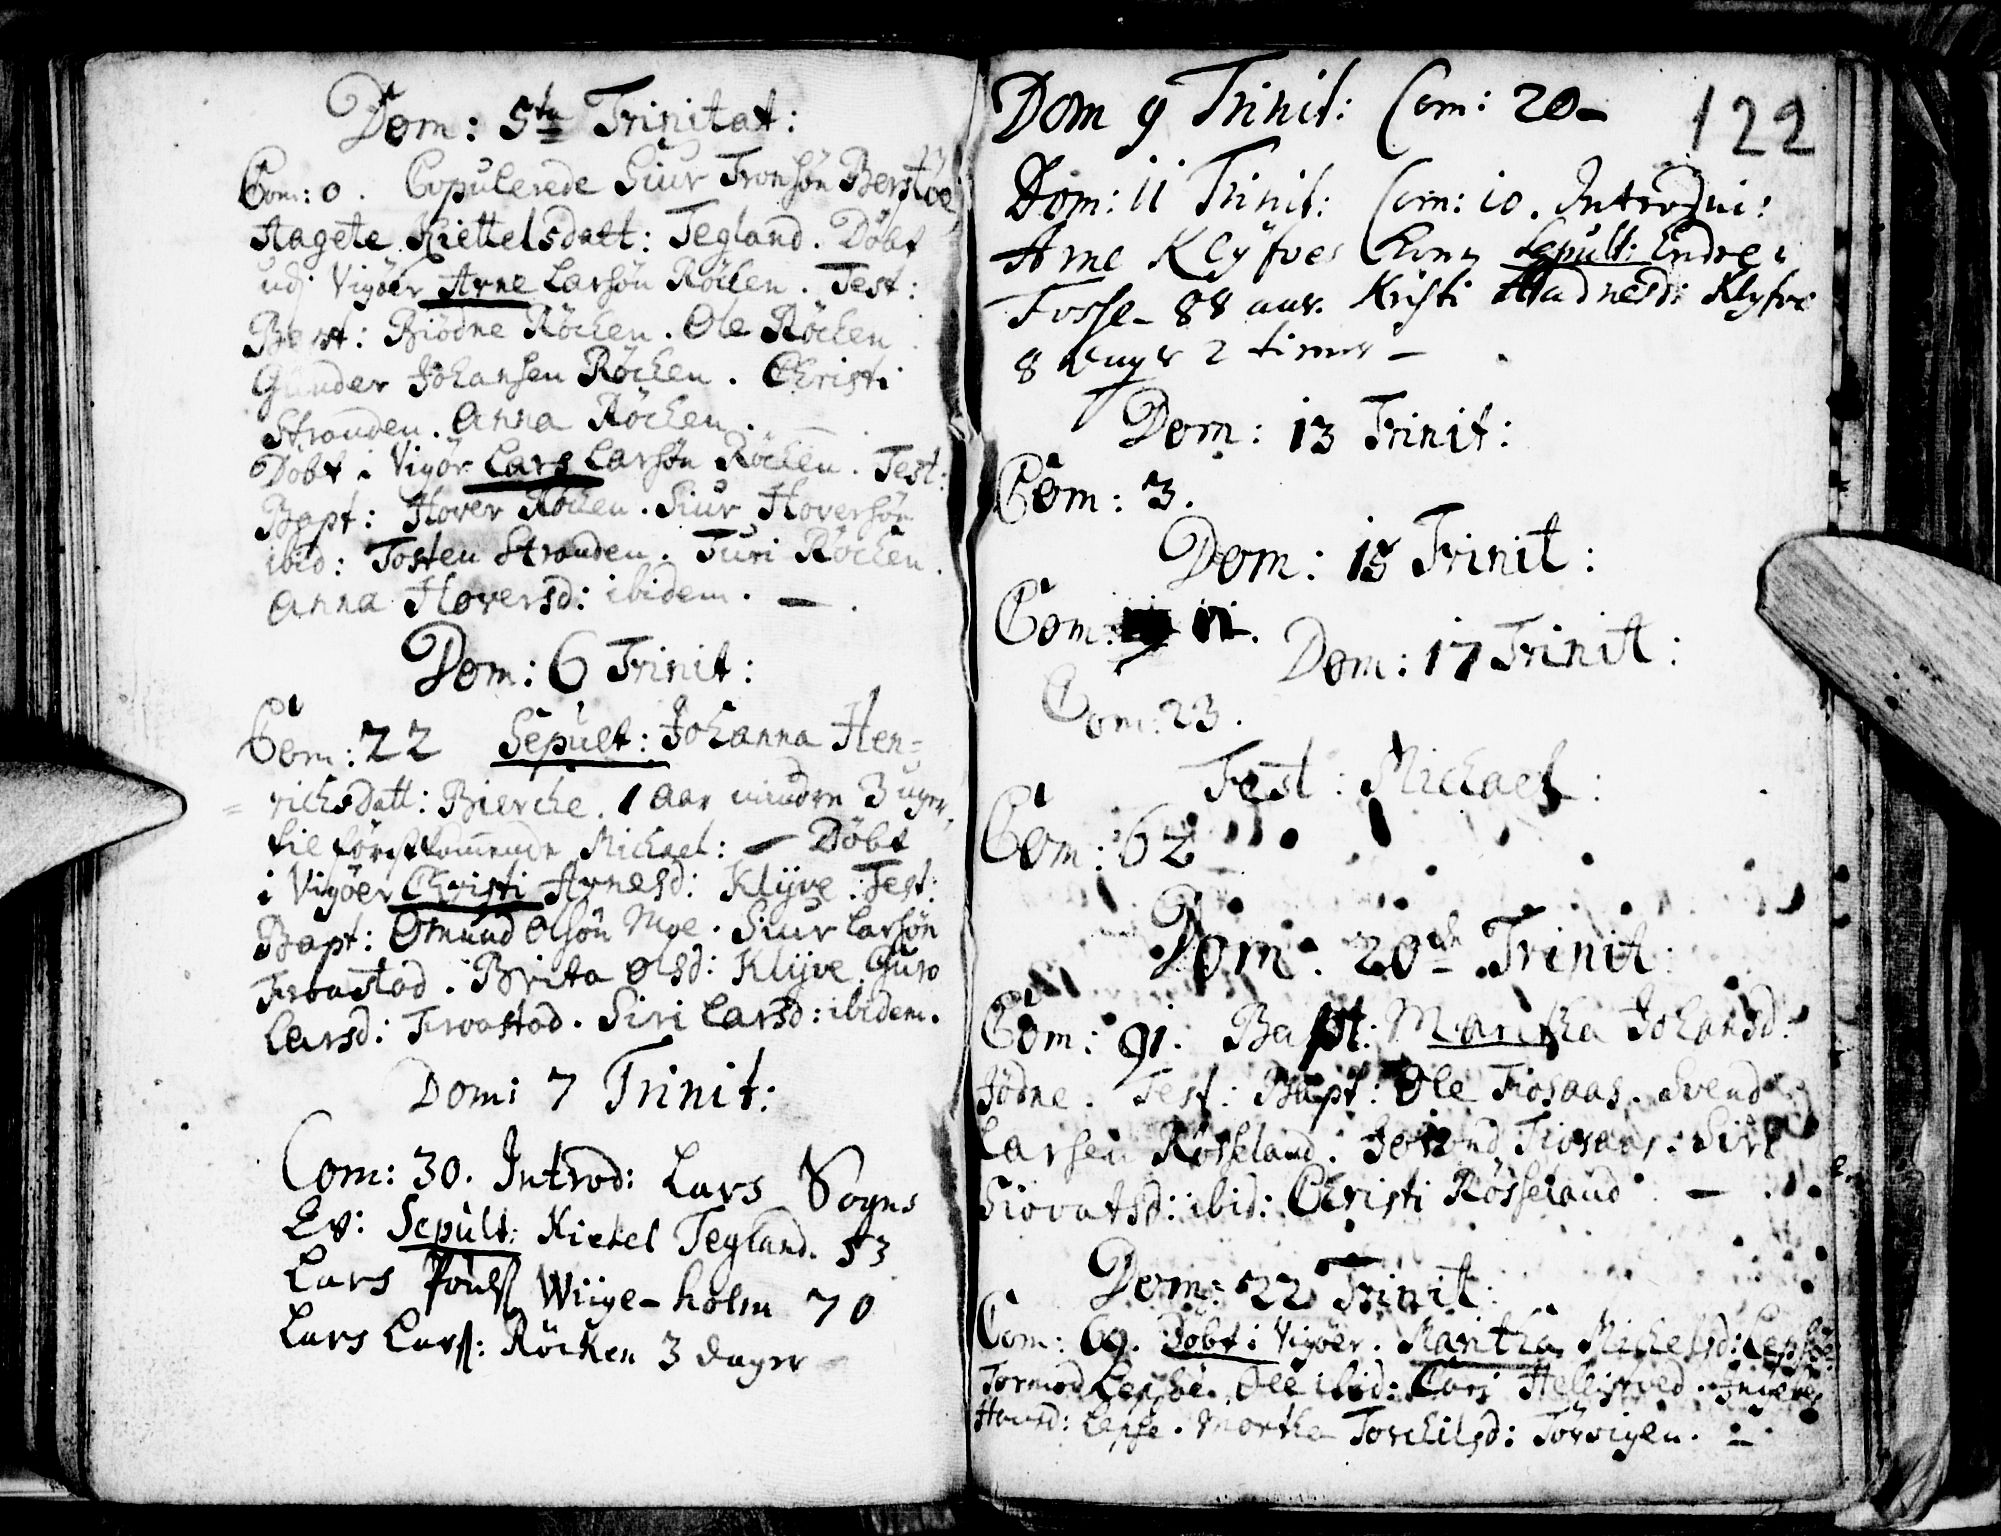 Dom: 5te Trinitat:
Com: 0. Copulerede Siur Tronsön
Aagete Kiettelsdatt: Tegland. Döbt
udj Vigöer Arne Larsön Röcken. Test:
Biödne Röcken. Ole Röcken
Gunder Johansen Röcken. Christi
Stranden. Anna Röcken.
Döbt i Vigör Lars Larsön Röcken. Test:
Bapt: Hover Röcken. Siur Hoversön
ibid: Tosten Stranden. Turi Röcken.
Anna Hoversd: ibidem. —.
Dom: 6 Trinit:
Com: 22 Sepult: Johanna Hen=
=richsdatt: Bierche. 1 aar minden 3 uger
til förstkommende Michael: — Döbt
i Vigöer Christi Arnesd: Klÿve. Test:
Bapt: Omund Olsön Moe. Siur Larsön
Troastad. Brita Olsd: Klÿve. Guro
Larsd: Troastad. Siri Larsd: ibidem.
Dom: 7 Trinit:
Com: 30. Introd: Lars Sogns
Ev: Sepult: Kietel Tegland. 53
Lars Pouls Wiige-holm 70
Lars Lars: Röcken 3 dager
122
Dom 9 Trinit: Com: 20-
Dom: 11 Trinit: Com: 10. Introdui:
Arne Klÿfves Kone Sepult: Endre
Fosse- 88 aar. Kristi Klyfve
8 uger 2 timer —
Dom: 13 Trinit:
Com: 3.
Dom: 15 Trinit:
Com:
Dom: 17 Trinit:
Com: 23.
Fest: Michael:
Com: 62
Dom: 20de Trinit:
Com: 91. Bapt: Maritha Johansd:
Jödne. Test: Bapt: Ole Fiosaas. Svend
Larsen Rösseland. Fiosaas. Siri
Siovatsd: ibid: Christi Rösseland. —
Dom: 22 Trinit:
Com: 69. Döbt i Vigöer. Maritha Michelsd:
Tormod Ole ibid:
Martha Torchilsd: Törvigen. —